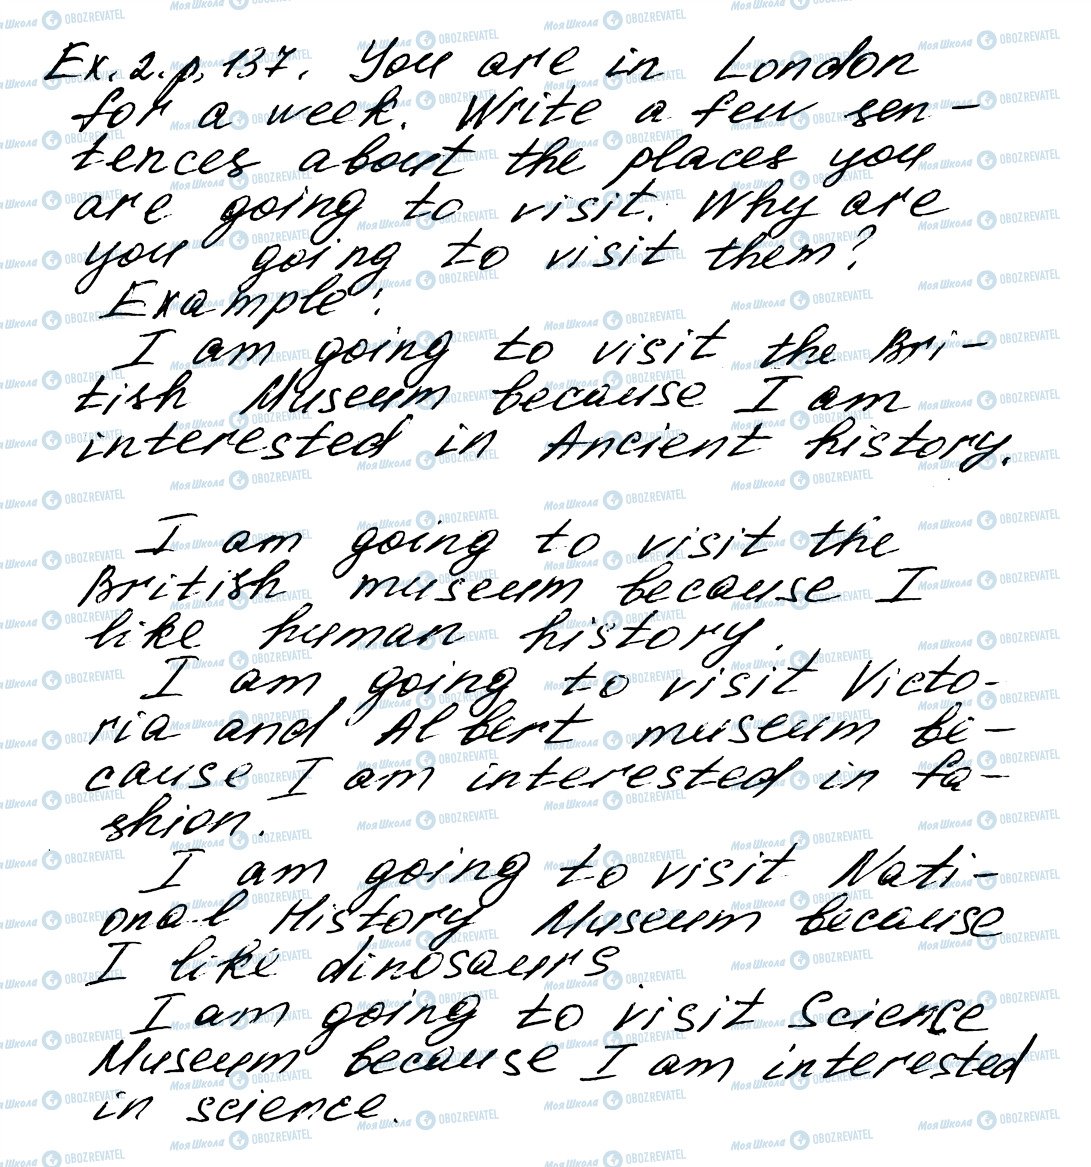 Ex. 2. p. 137. You are in London
for a week. Write a few sen-
tences about the places you
are going to visit. Why are
you going to visit them?
Example:
I am going to visit the Bri-
tish Museum because I am
interested in Ancient history.
I am going to visit the
British museum because I
like human history.
I am going to visit Victo-
ria and Albert museum be-
cause I am interested in fa-
shion.
I am going to visit Nati-
onal History Museum because
I like dinosaurs
I am going to visit Science
Museum because I am interested
in science.